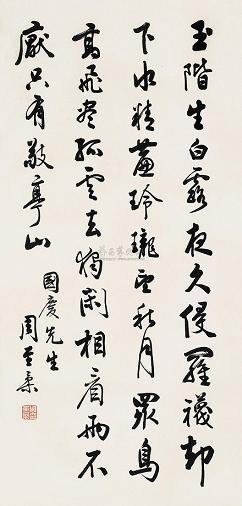 玉階生白露夜久侵羅襪却
下水精簾玲瓏望秋月眾鳥
高飛盡孤雲去獨閑相看兩不
厭只有敬亭山
國慶先生
周